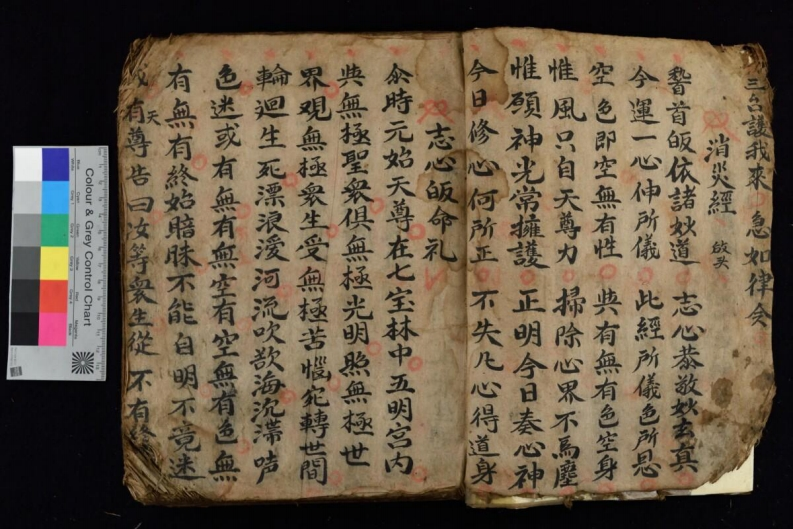 三台護我來 急如律令
消災經 啟头
稽首皈依諸妙道 志心恭敬妙玄真
今運一心伸所儀 此經所儀色所恩
空色即空無有性 與有無有色空身
惟風只自天尊力 掃除心界不爲塵
惟願神光常擁護 正明今日奏心神
今日修心何所正 不失凡心得道身
志心皈命礼
尒時元始天尊在七宝林中五明宫内
與無極聖衆俱無極光明照無極世
界观無極衆生受無極苦惱宛轉世間
輪迴生死漂浪爱河流吹欲海沉滯声
色迷或有無有無空有空無有色無
有無有終始暗昧不能自明不竟迷
或有天尊告曰汝等衆生從不有
Colour & Grey Control Chart